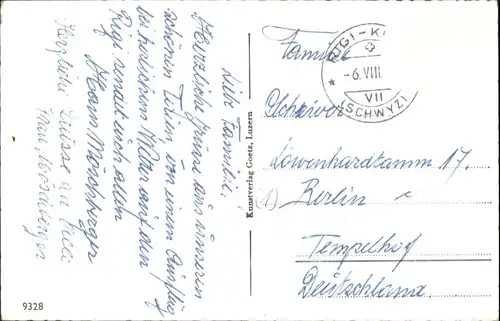 Liebe Familie!
Herzliche Grüsse aus unseren
schönen Ferien, von einem Ausflug
bei herrlichem Wetter auf den
Rigi sendet euch allen
Hans
Herzliche Grüsse an
Kunstverlag Goetz, Luzern
9328
RIGI-K
-6.VIII
VII
(SCHWYZ)
Familie
Löwenhardtdamm 17.
(1) Berlin
Tempelhof
Deutschland